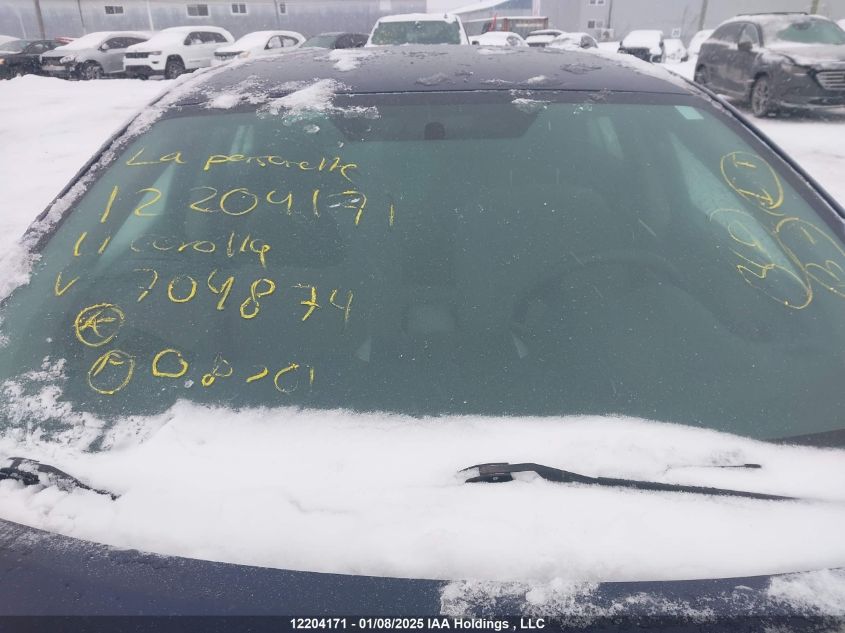 La personelle
12204171
11 corolla
V 704874
K
F 08-01
I
39
F3
12204171 - 01/08/2025 IAA Holdings , LLC